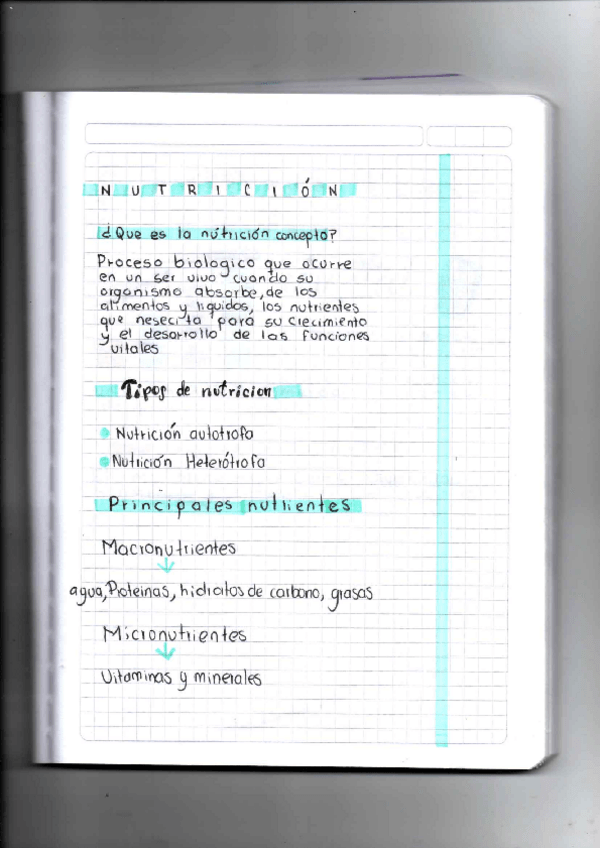 NUTRICIÓN
¿Que es la nútrición concepto?
Proceso biologico que ocurre
en un ser vivo cuando su
organismo absorbe, de los
alimentos y liquidos, los nutrientes
que nesecita para su crecimiento
y el desarrollo de las funciones
vitales
Tipos de nutricion
Nutrición autotrofa
Nutrición Heterótrofa
Principales nutrientes
Macronutrientes
agua, Proteinas, hidratos de carbono, grasas
Micronutrientes
Vitaminas y minerales